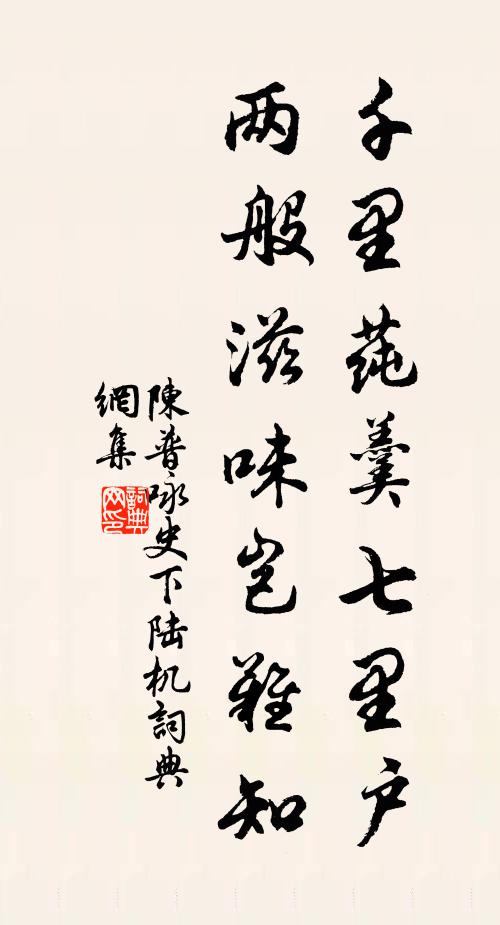 千里莼羹七里户
两般滋味岂难知
陳普咏史下陆机詞典
網集
詞典网印